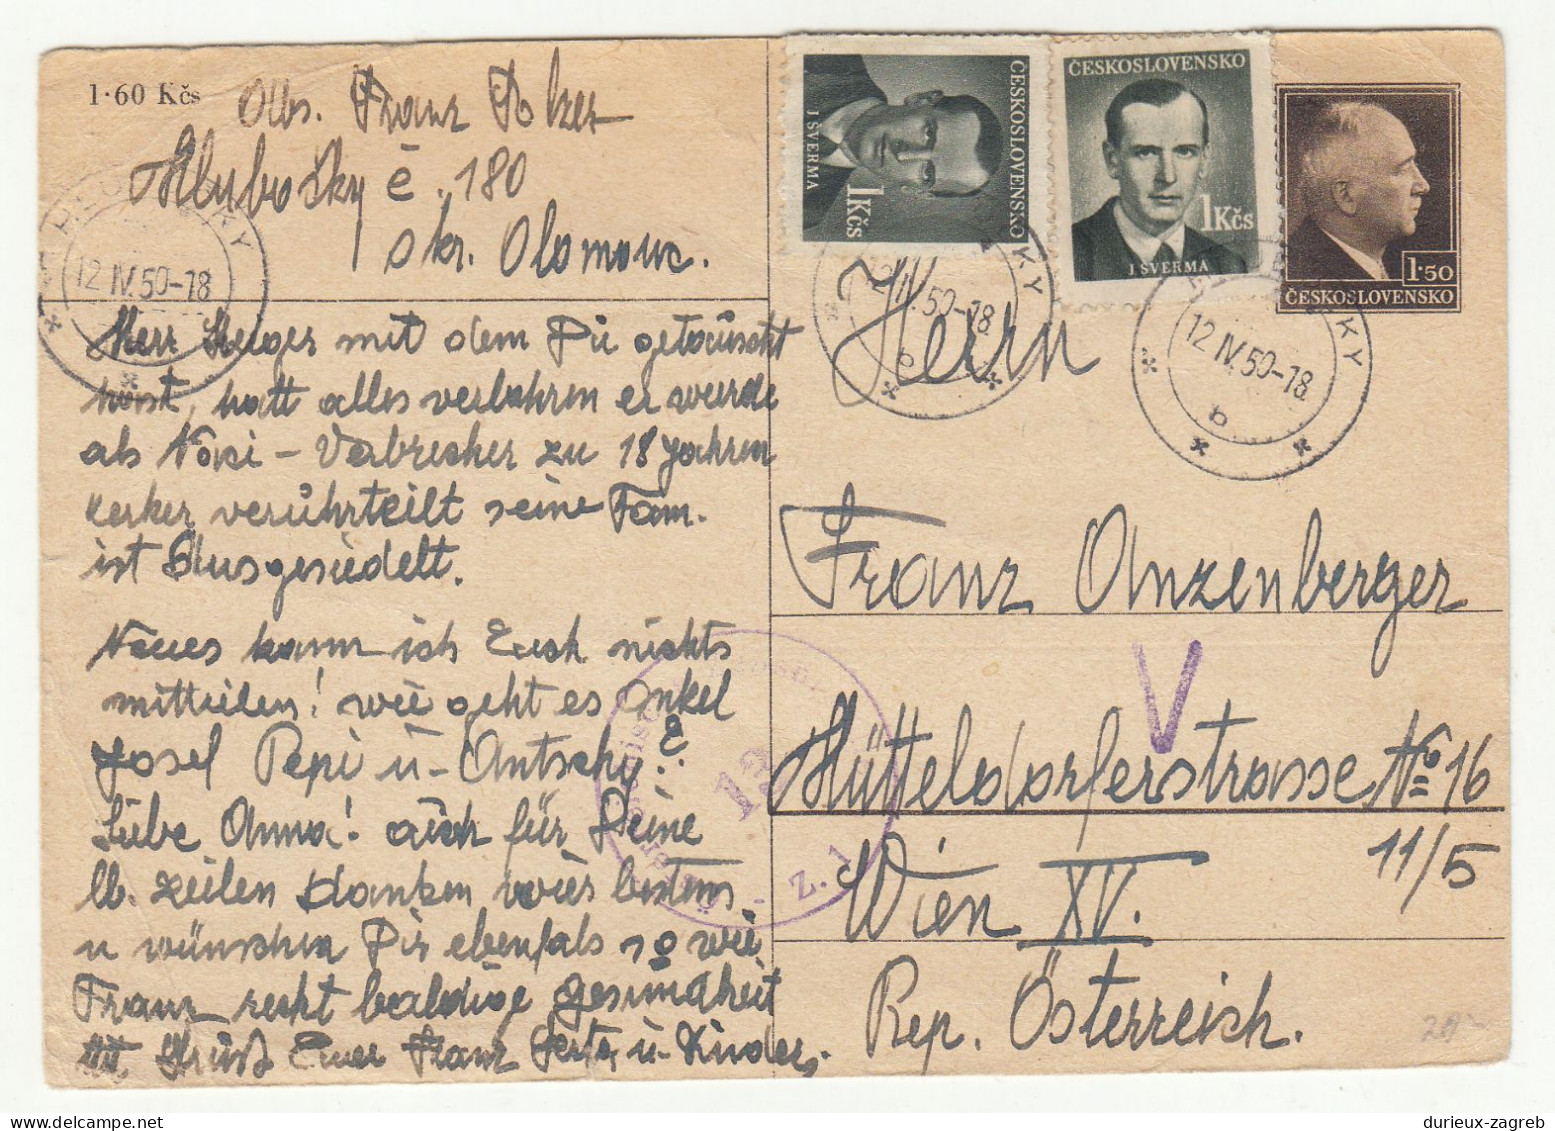 1·60 Kčs
Obs. Franz
Hlubočky č. 180
okr. Olomouc.
HLUBOČKY
12 IV.50-18
Herr mit dem Du getäuscht
hast, hatt alles verlohren er wurde
als Nazi - Verbrecher zu 18 Jahren
kerker verührteilt seine Fam.
ist Ausgesiedelt.
Neues kann ich Euch nichts
mitteilen! wie geht es Onkel
Josef Pepi u- Antschy?
Liebe Anna! auch für Deine
lb. Zeilen danken wir bestens
u wünschen Dir ebenfals so wie
Franz recht baldige gesundheit
Mit Gruß Euer Franz Herta u- Kinder.
ČESKOSLOVENSKO
J. ŠVERMA
1 Kčs
ČESKOSLOVENSKO
J. ŠVERMA
1 Kčs
1·50
ČESKOSLOVENSKO
12 IV.50-18
b
12 IV.50-18
b
Herrn
Franz Anzenberger
V
Hütteldorferstrasse No 16
11/5
Wien XV.
Rep. Österreich.
Z. 1
20-
durieux-zagreb